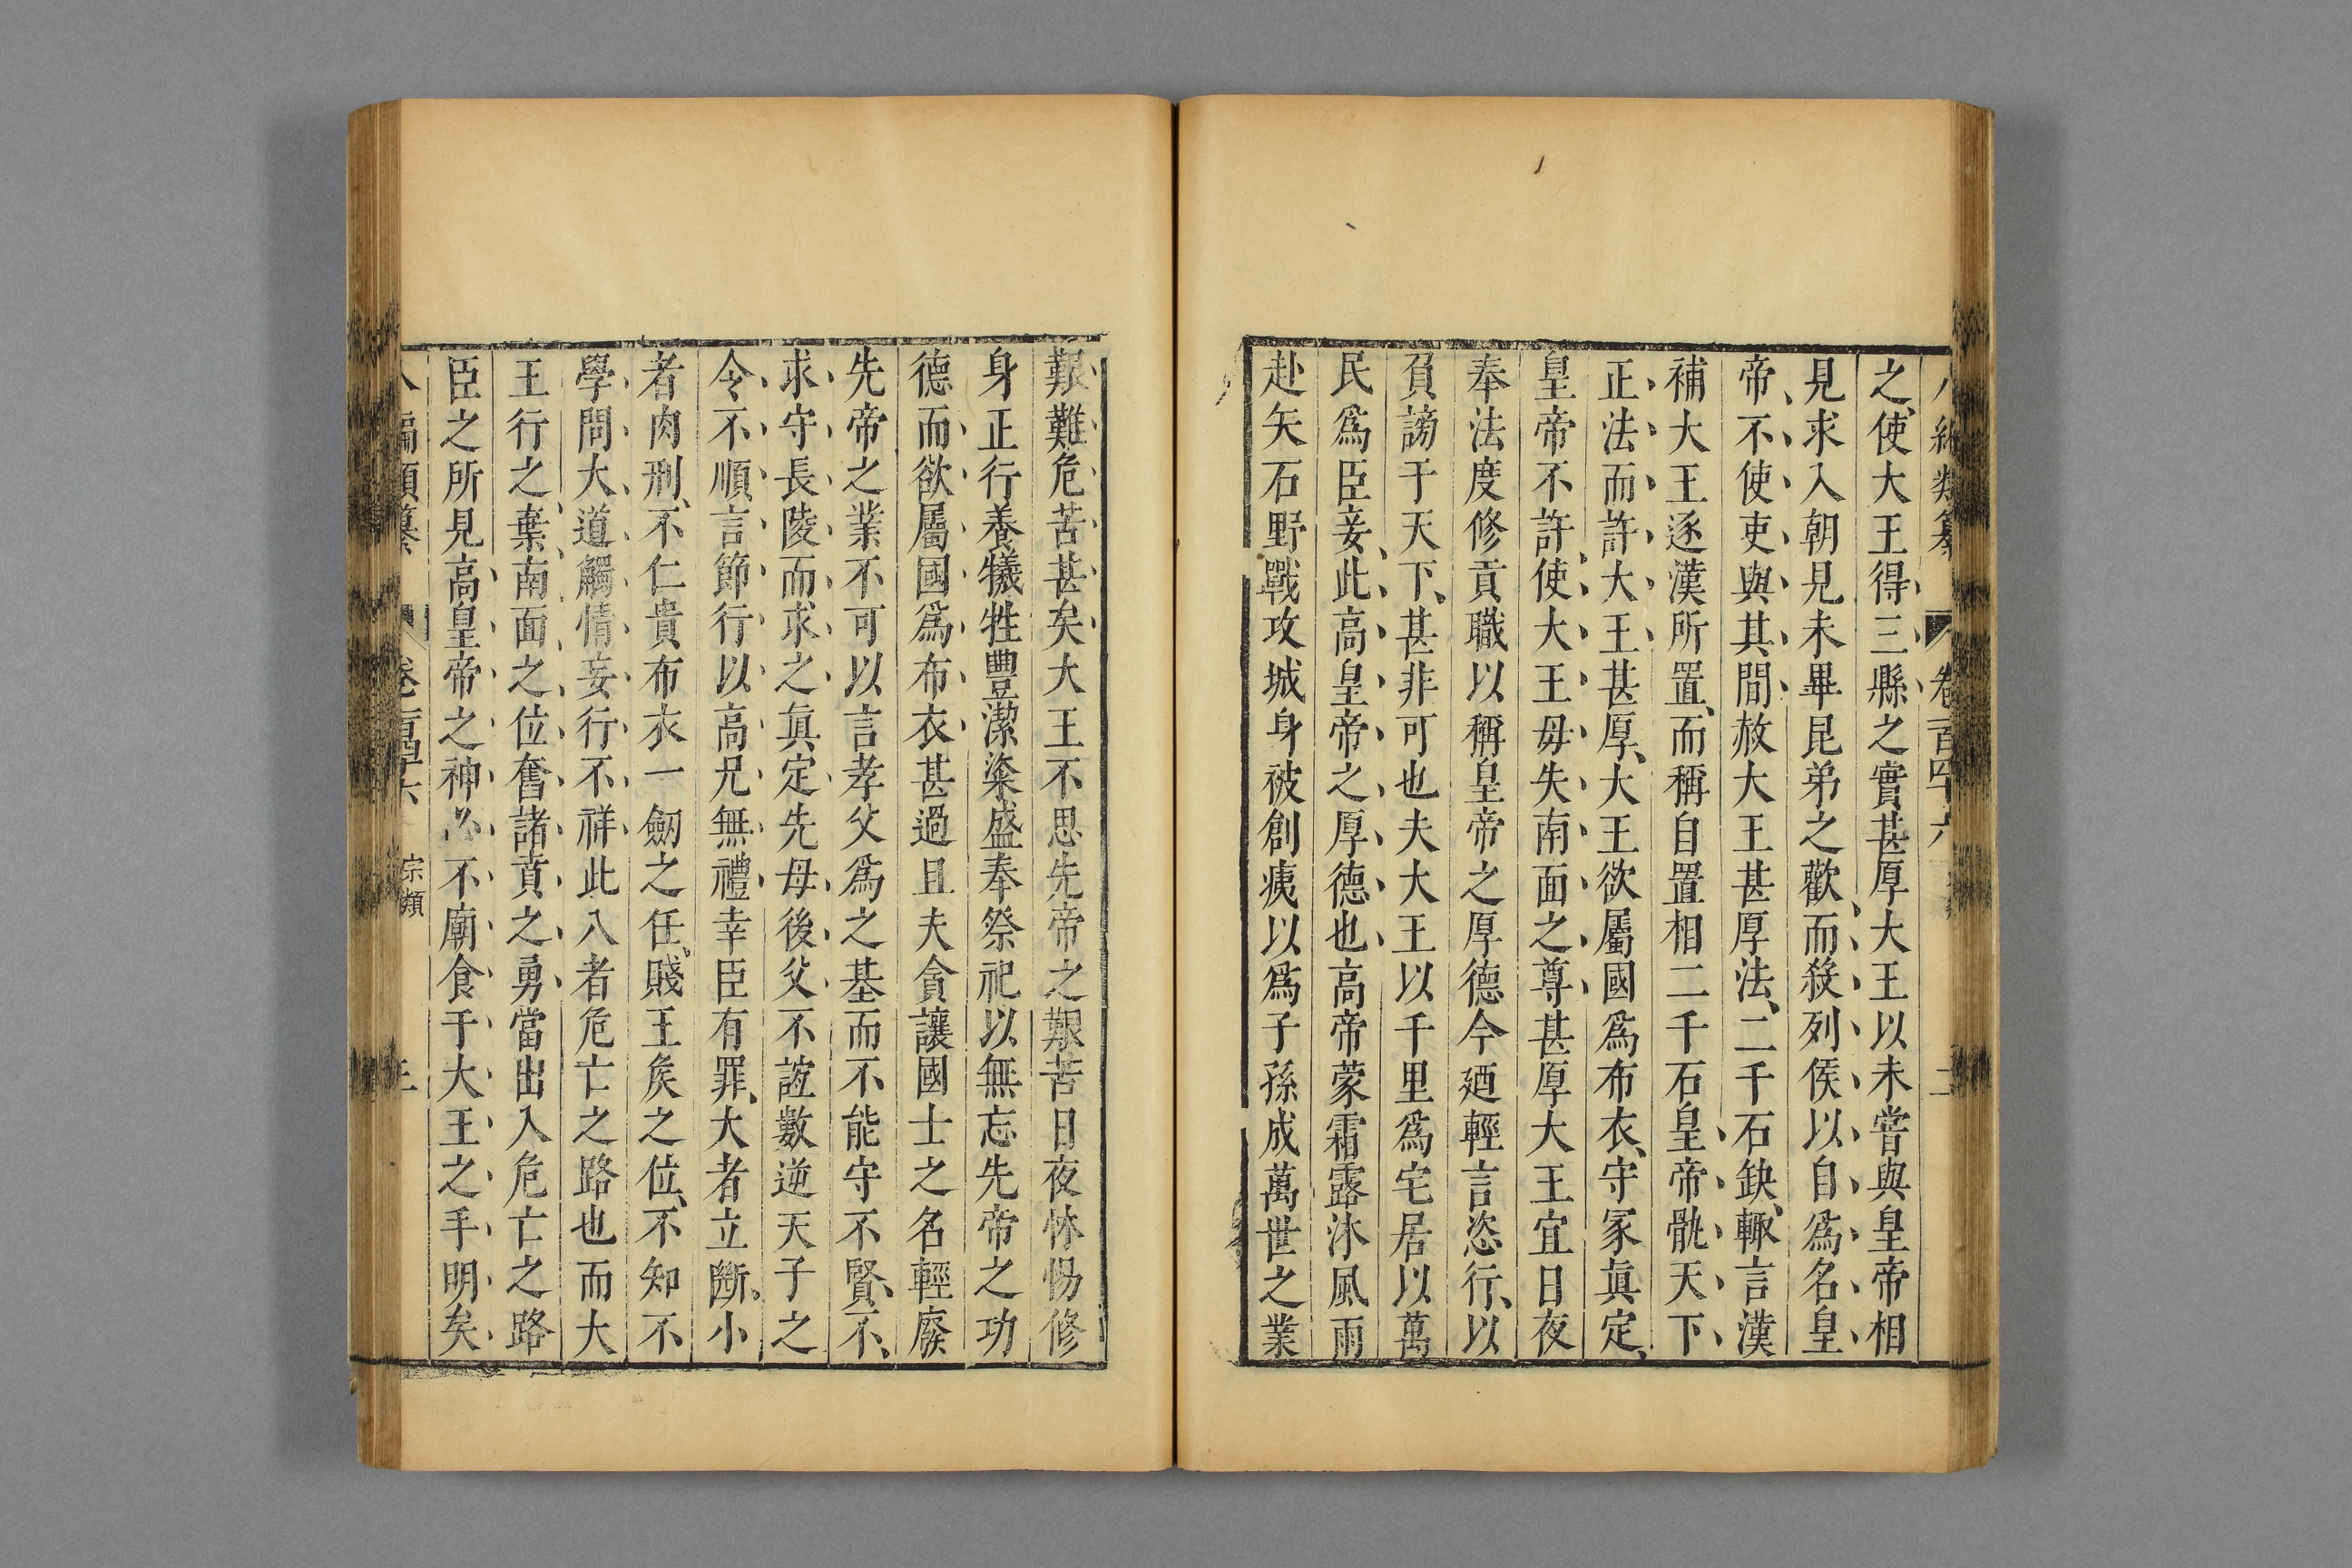 之、使大王得三縣之實甚厚大王以未甞與皇帝相
見求入朝見未畢昆弟之歡、而殺列侯以自爲名皇
帝、不使吏與其間赦大王甚厚法、二千石缺、輙言漢
補大王逐漢所置、而稱自置相二千石皇帝骩天下
正法而許大王甚厚、大王欲屬國爲布衣、守冢眞定、
皇帝不許使大王毋失南面之尊甚厚大王宜日夜
奉法度修貢職以稱皇帝之厚德今廼輕言恣行、以
負謗于天下、甚非可也夫大王以千里爲宅居以萬
民爲臣妾、此高皇帝之厚德也高帝蒙霜露沐風雨
赴矢石野戰攻城身被創痍以爲子孫成萬世之業
艱難危苦甚矣大王不思先帝之艱苦日夜怵惕修
身正行養犧牲豐潔粢盛奉祭祀以無忘先帝之功
德而欲屬國爲布衣甚過且夫貪讓國士之名輕廢
先帝之業不可以言孝父爲之基而不能守不賢、不
求守長陵而求之眞定先母後父不誼數逆天子之
令不順、言節行以高兄無禮幸臣有罪、大者立斷、小
者肉刑、不仁貴布衣一劒之任、賤王矦之位、不知不
學問大道觸情妄行不祥此八者危亡之路也而大
王行之、棄南面之位奮諸賁之勇當出入危亡之路
臣之所見高皇帝之神必不廟食于大王之手明矣
八編類纂 卷百四十六 宗類 三